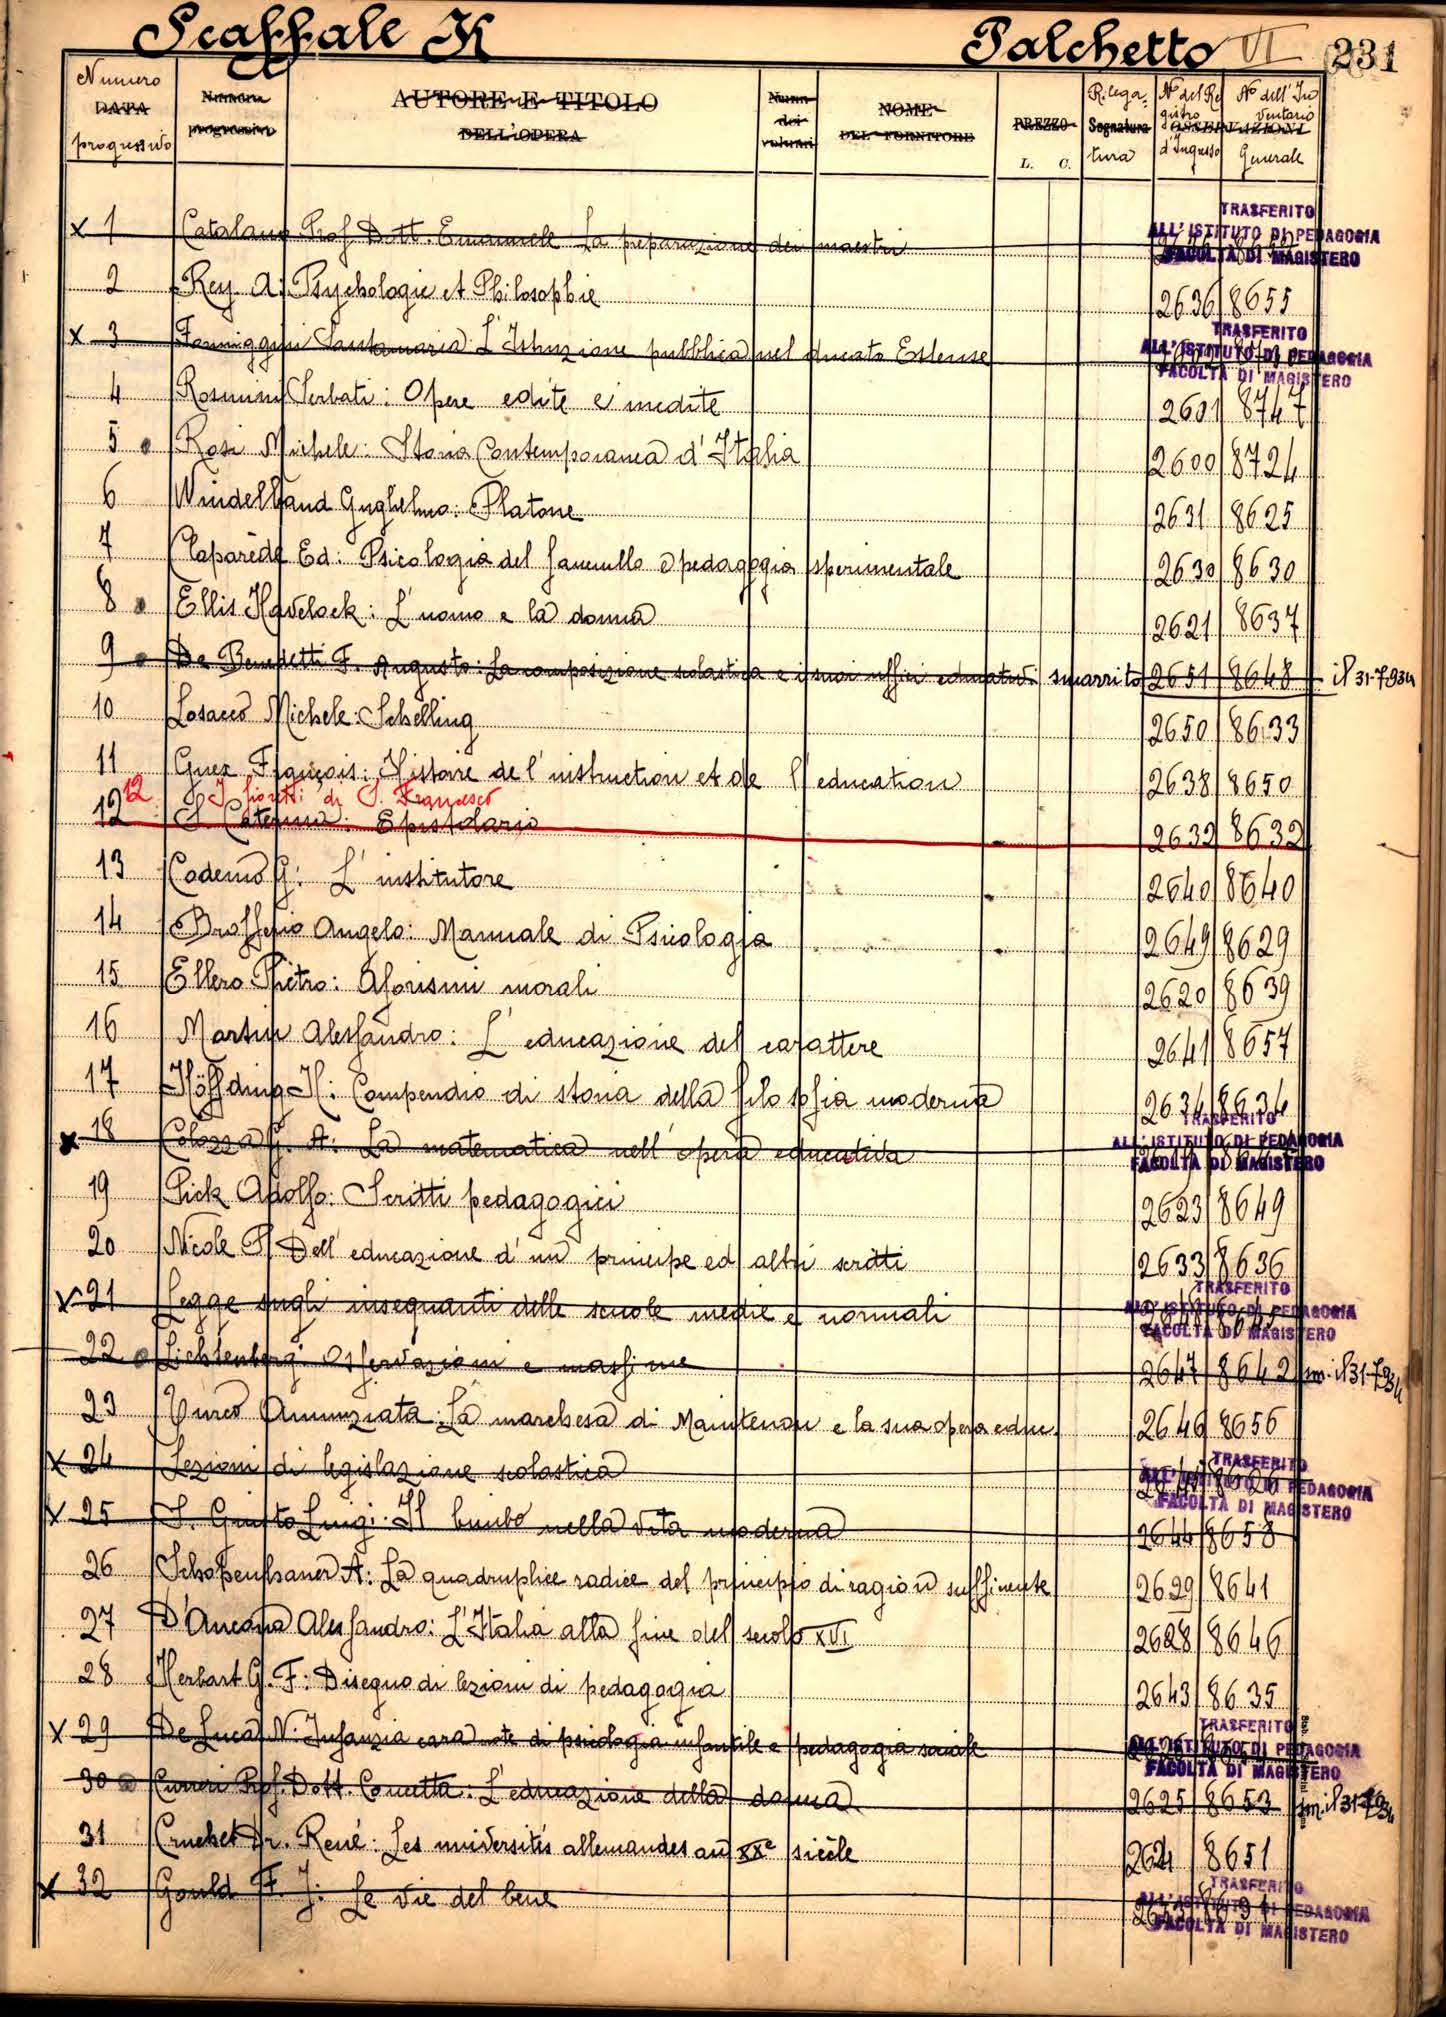 Scaffale K Palchetto VI 231
Numero DATA progressivo
Numero progressivo
AUTORE E TITOLO DELL'OPERA
Num. dei volumi
NOME DEL FORNITORE
PREZZO L. C.
Rilega= Segnatura tura
N° del Re gistro d'Ingresso
OSSERVAZIONI
N° dell'In ventario Generale
TRASFERITO
x 1 Catalano Prof. Dott. Emanuele La preparazione dei maestri ALL'ISTITUTO DI PEDAGOGIA
FACOLTÀ DI MAGISTERO
2 Rey A: Psychologie et Philosophie 2636 8655
TRASFERITO
x 3 Santamaria L'Istruzione pubblica nel ducato Estense ALL'ISTITUTO DI PEDAGOGIA
FACOLTÀ DI MAGISTERO
4 Rosmini Serbati: Opere edite e inedite 2601 8747
5 Rosi Michele: Storia Contemporanea d'Italia 2600 8724
6 Windelband Guglielmo: Platone 2631 8625
7 Claparède Ed: Psicologia del fanciullo e pedagogia sperimentale 2630 8630
8 Ellis Havelock: L'uomo e la donna 2621 8637
9 De Benedetti F. Augusto: La composizione scolastica e i suoi uffici educativi smarrito 2651 8648 il 31-7-934
10 Losacco Michele: Schelling 2650 8633
11 Guex François: Histoire de l'instruction et de l'education 2638 8650
12 I fioretti di S. Francesco
12 S. Caterina: Epistolario 2632 8632
13 Cademo G: L'institutore 2640 8640
14 Brofferio Angelo: Manuale di Psicologia 2649 8629
15 Ellero Pietro: Aforismi morali 2620 8639
16 Martin Alessandro: L'educazione del carattere 2641 8657
17 Höffding H: Compendio di storia della filosofia moderna 2634 8634
TRASFERITO
x 18 Colozza G. A: La matematica nell'opera educativa ALL'ISTITUTO DI PEDAGOGIA
FACOLTÀ DI MAGISTERO
19 Pick Adolfo: Scritti pedagogici 2623 8649
20 Nicole P. Dell'educazione d'un principe ed altri scritti 2633 8636
TRASFERITO
x 21 Legge sugli insegnanti delle scuole medie e normali ALL'ISTITUTO DI PEDAGOGIA
FACOLTÀ DI MAGISTERO
22 Lichtenberg: Osservazioni e massime 2647 8642 sm. il 31-7-934
23 Turco Annunziata: La marchesa di Maintenon e la sua opera educ. 2646 8656
TRASFERITO
x 24 Lezioni di legislazione scolastica ALL'ISTITUTO DI PEDAGOGIA
FACOLTÀ DI MAGISTERO
x 25 S. Giusto Luigi: Il bimbo nella vita moderna 2644 8658
26 Schopenhauer A: La quadruplice radice del principio di ragion sufficiente 2629 8641
27 D'Ancona Alessandro: L'Italia alla fine del secolo XVI 2628 8646
28 Herbart G. F: Disegno di lezioni di pedagogia 2643 8635
TRASFERITO
x 29 De Luca N: Infanzia cara note di psicologia infantile e pedagogia sociale ALL'ISTITUTO DI PEDAGOGIA
FACOLTÀ DI MAGISTERO
30 Curreri Prof. Dott. Concetta: L'educazione della donna 2625 8653 sm. il 31-7-934
31 Cruchet Dr. René: Les universités allemandes au XXe siècle 2624 8651
TRASFERITO
x 32 Gould F. J: Le vie del bene ALL'ISTITUTO DI PEDAGOGIA
FACOLTÀ DI MAGISTERO